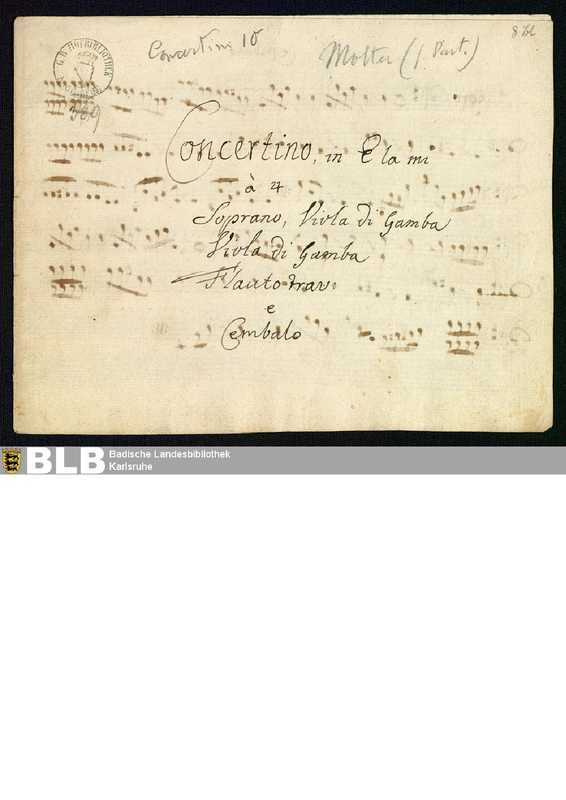 8 bl
Concertini 10
Molter (1 Part.)
G. H. HOFBIBLIOTHEK
309
Concertino, in E la mi
à 4
Soprano, Viola di Gamba
Viola di Gamba
Flauto trav:
e
Cembalo
BLB Badische Landesbibliothek
Karlsruhe